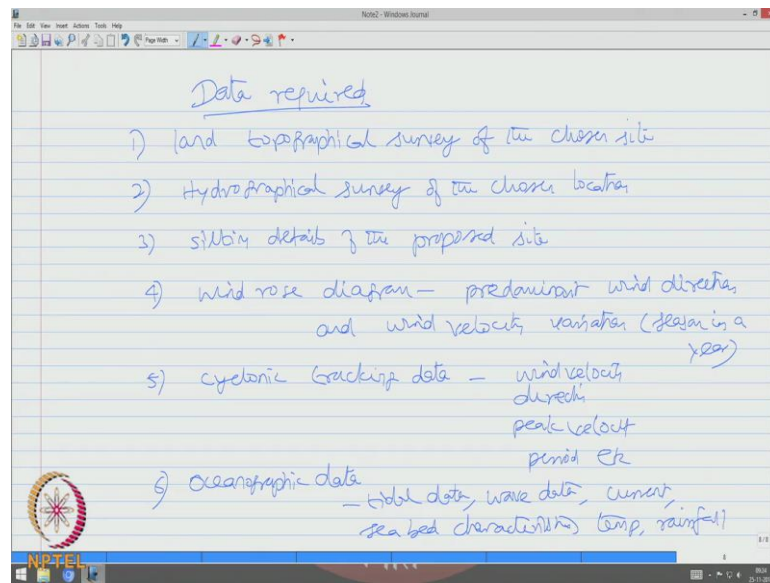 Note2 - Windows Journal
File Edit View Insert Actions Tools Help
Page Width
Data required
1) land topographical survey of the chosen site
2) Hydrographical survey of the chosen location
3) silting details of the proposed site
4) wind rose diagram - predominant wind direction
and wind velocity variation (season in a
year)
5) cyclonic tracking data - wind velocity
direction
peak velocity
period etc
6) oceanographic data
- tidal data, wave data, current,
sea bed characteristics, temp, rainfall
NPTEL
8/8
8